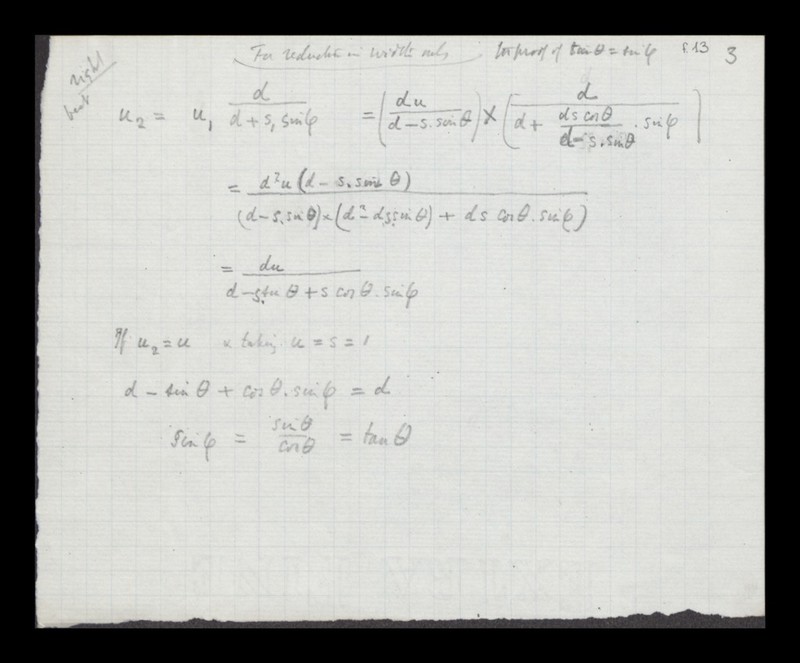 For reduction in width only for proof of tan θ = sin φ P.13 3
right
but
u₂ = u₁ d/(d + s₁ sin φ) = (du/(d − s. sin θ)) × (d/(d + (ds cos θ/(d − s. sin θ)) . sin φ))
= d²u (d − s. sin θ)/((d − s. sin θ) × (d² − ds. sin θ) + ds cos θ. sin φ)
= du/(d − s. sin θ + s cos θ. sin φ)
If u₂ = u & taking u = s = 1
d − sin θ + cos θ. sin φ = d
sin φ = sin θ/cos θ = tan θ